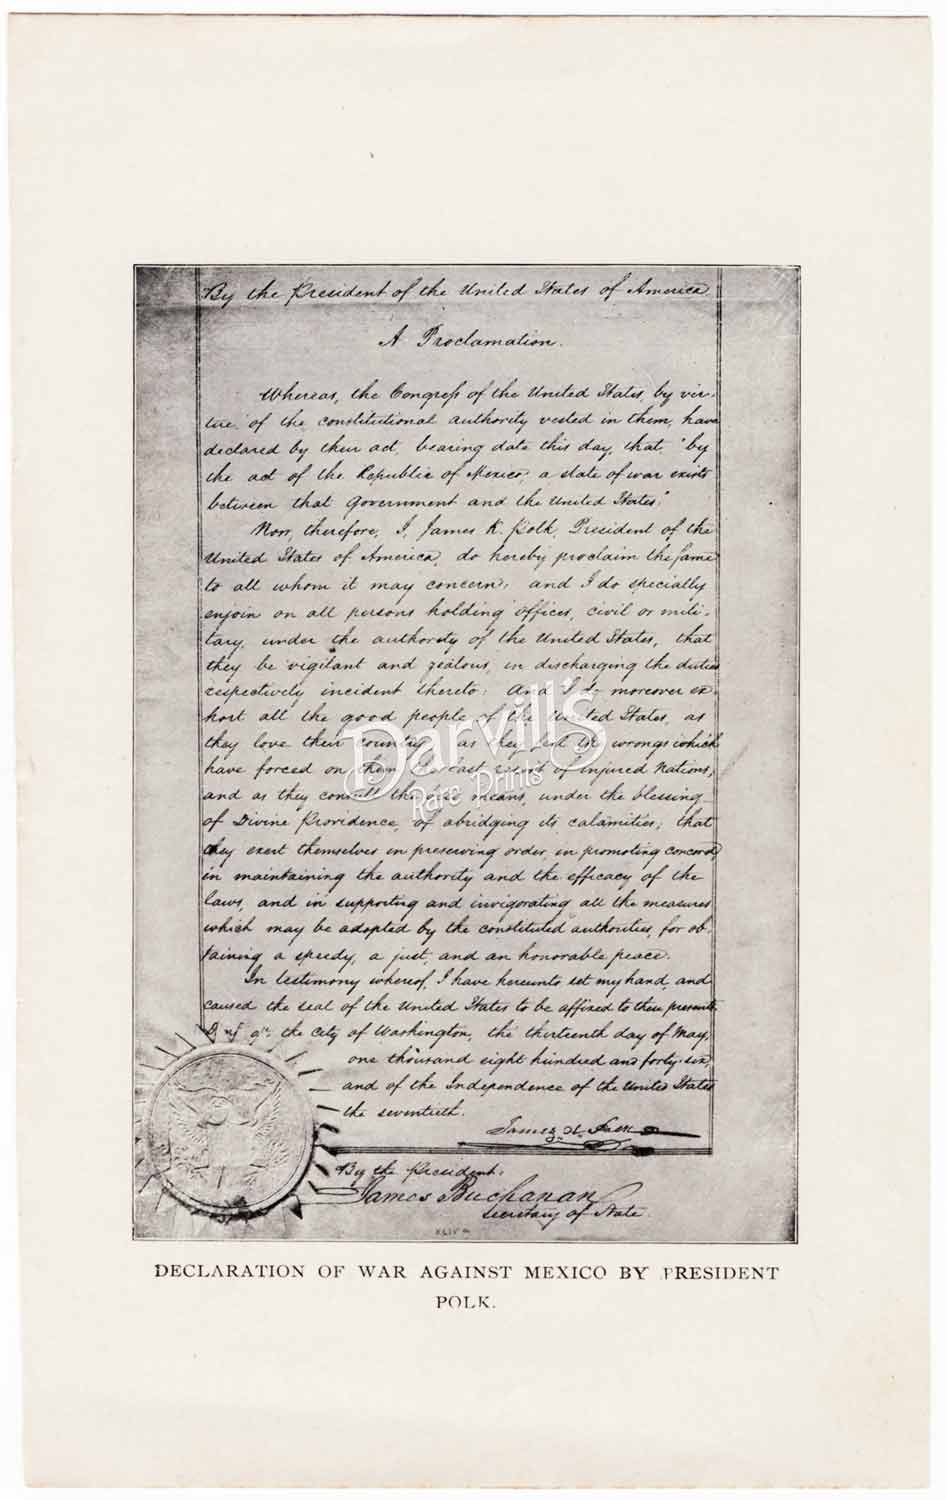 By the President of the United States of America.
A Proclamation.
Whereas, the Congress of the United States, by vir-
tue of the constitutional authority vested in them, have
declared by their act, bearing date this day, that, "by
the act of the Republic of Mexico, a state of war exists
between that Government and the United States."
Now, therefore, I, James K. Polk, President of the
United States of America, do hereby proclaim the same
to all whom it may concern; and I do specially
enjoin on all persons holding offices, civil or mili-
tary, under the authority of the United States, that
they be vigilant and zealous, in discharging the duties
respectively incident thereto: And I do moreover ex-
hort all the good people of the United States, as
they love their country, as they feel the wrongs which
have forced on them the last resort of injured Nations,
and as they consult the best means, under the blessing
of Divine Providence, of abridging its calamities; that
they exert themselves in preserving order, in promoting concord,
in maintaining the authority and the efficacy of the
laws, and in supporting and invigorating all the measures
which may be adopted by the constituted authorities, for ob-
taining a speedy, a just, and an honorable peace.
In testimony whereof, I have hereunto set my hand, and
caused the seal of the United States to be affixed to these presents.
the City of Washington, the thirteenth day of May,
one thousand eight hundred and forty-six,
and of the Independence of the United States
the seventieth.
James K. Polk
By the President:
James Buchanan
Secretary of State.
Darvill's
Rare Prints
DECLARATION OF WAR AGAINST MEXICO BY PRESIDENT
POLK.